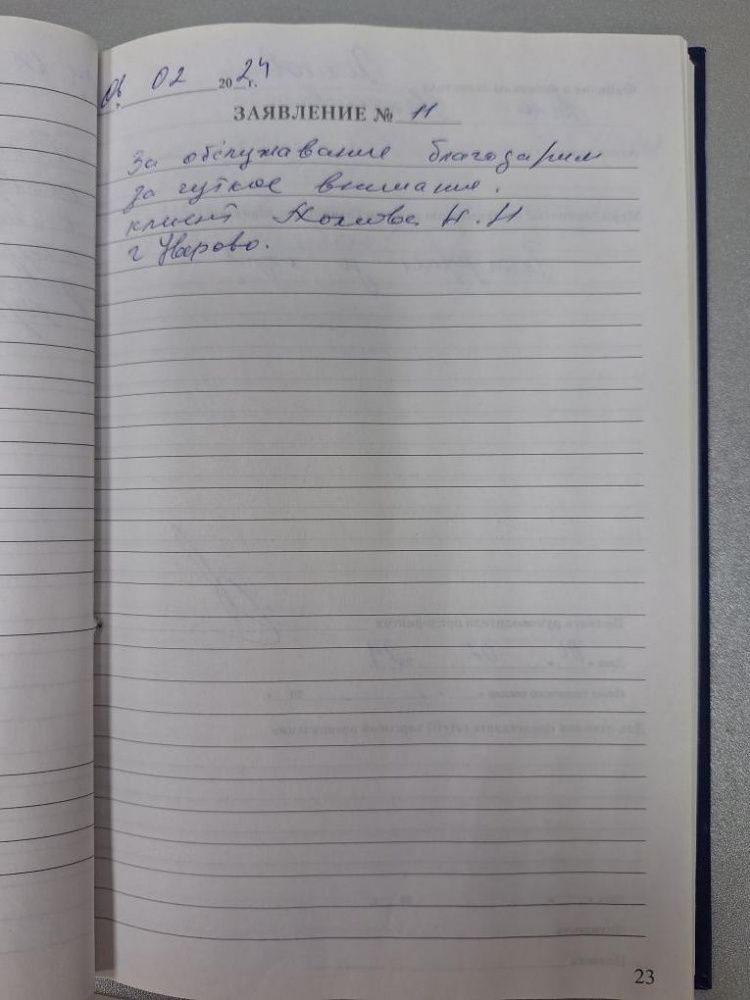 06 02 2024 г.
ЗАЯВЛЕНИЕ № 11
За обслужавание благодарим
за чуткое внимание.
клиент Н. Н
г Уварово.
23